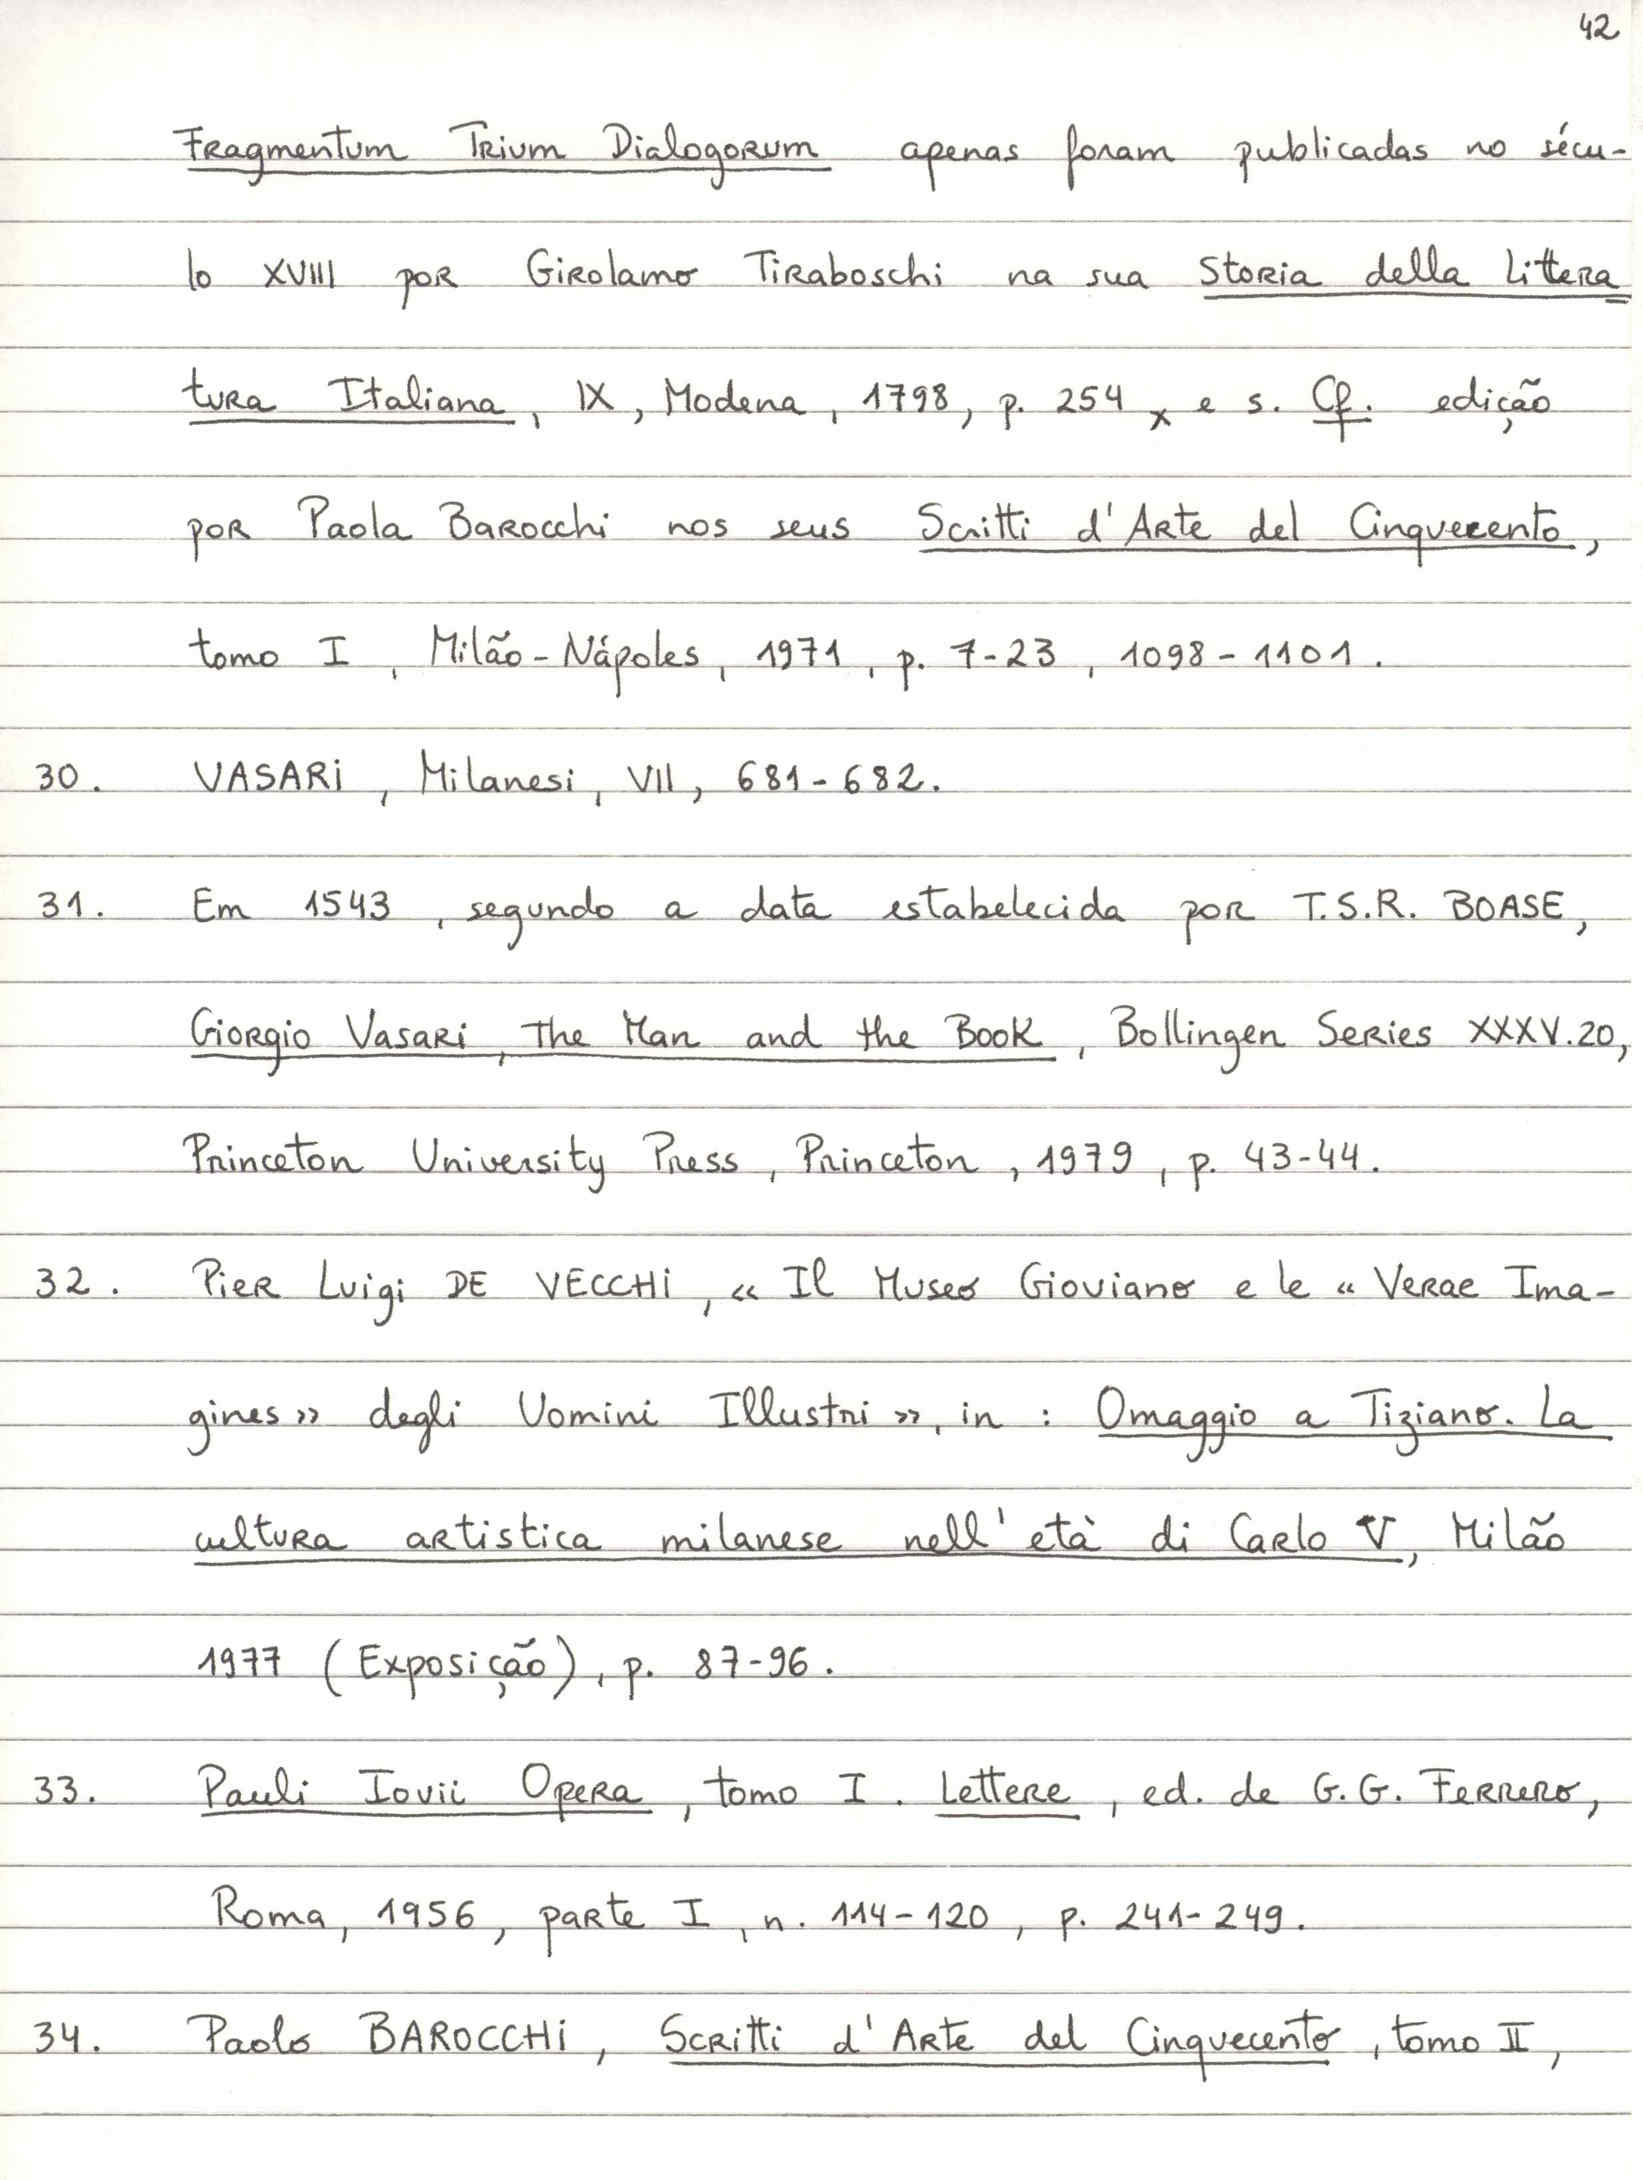 42
Fragmentum Trium Dialogorum apenas foram publicadas no sécu-
lo XVIII por Girolamo Tiraboschi na sua Storia della Littera
tura Italiana, IX, Modena, 1798, p. 254 x e s. Cf. edição
por Paola Barocchi nos seus Scritti d'Arte del Cinquecento,
tomo I, Milão-Nápoles, 1971, p. 7-23, 1098-1101.
30. VASARi, Milanesi, VII, 681-682.
31. Em 1543, segundo a data estabelecida por T.S.R. BOASE,
Giorgio Vasari, The Man and the Book, Bollingen Series XXXV.20,
Princeton University Press, Princeton, 1979, p. 43-44.
32. Pier Luigi DE VECCHi, « Il Museo Gioviano e le « Verae Ima-
gines » degli Uomini Illustri », in : Omaggio a Tiziano. La
cultura artistica milanese nell'età di Carlo V, Milão
1977 (Exposição), p. 87-96.
33. Pauli Iovii Opera, tomo I. Lettere, ed. de G.G. Ferrero,
Roma, 1956, parte I, n. 114-120, p. 241-249.
34. Paolo BAROCCHi, Scritti d'Arte del Cinquecento, tomo II,